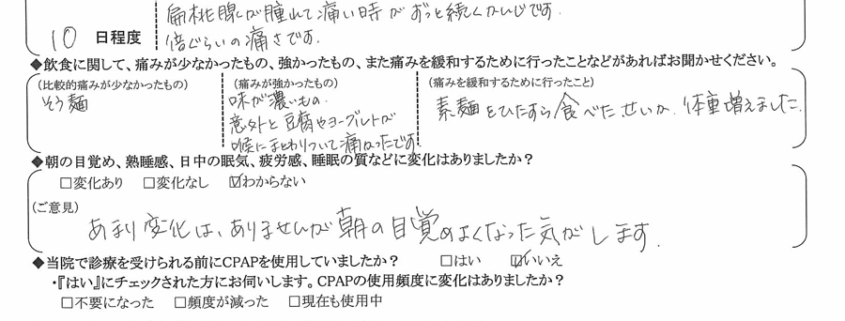 扁桃腺が腫れて痛い時がずっと続くかんじです。
10 日程度
倍ぐらいの痛さです。
◆飲食に関して、痛みが少なかったもの、強かったもの、また痛みを緩和するために行ったことなどがあればお聞かせください。
(比較的痛みが少なかったもの) (痛みが強かったもの) (痛みを緩和するために行ったこと)
そう麺
味が濃いもの。
意外と豆腐やヨーグルトが
喉にまとわりついて痛かったです。
素麺をひたすら食べたせいか、体重増えました。
◆朝の目覚め、熟睡感、日中の眠気、疲労感、睡眠の質などに変化はありましたか？
□変化あり □変化なし ☑わからない
(ご意見)
あまり変化は、ありませんが朝の目覚めよくなった気がします。
◆当院で診療を受けられる前にCPAPを使用していましたか？ □はい ☑いいえ
・『はい』にチェックされた方にお伺いします。CPAPの使用頻度に変化はありましたか？
□不要になった □頻度が減った □現在も使用中